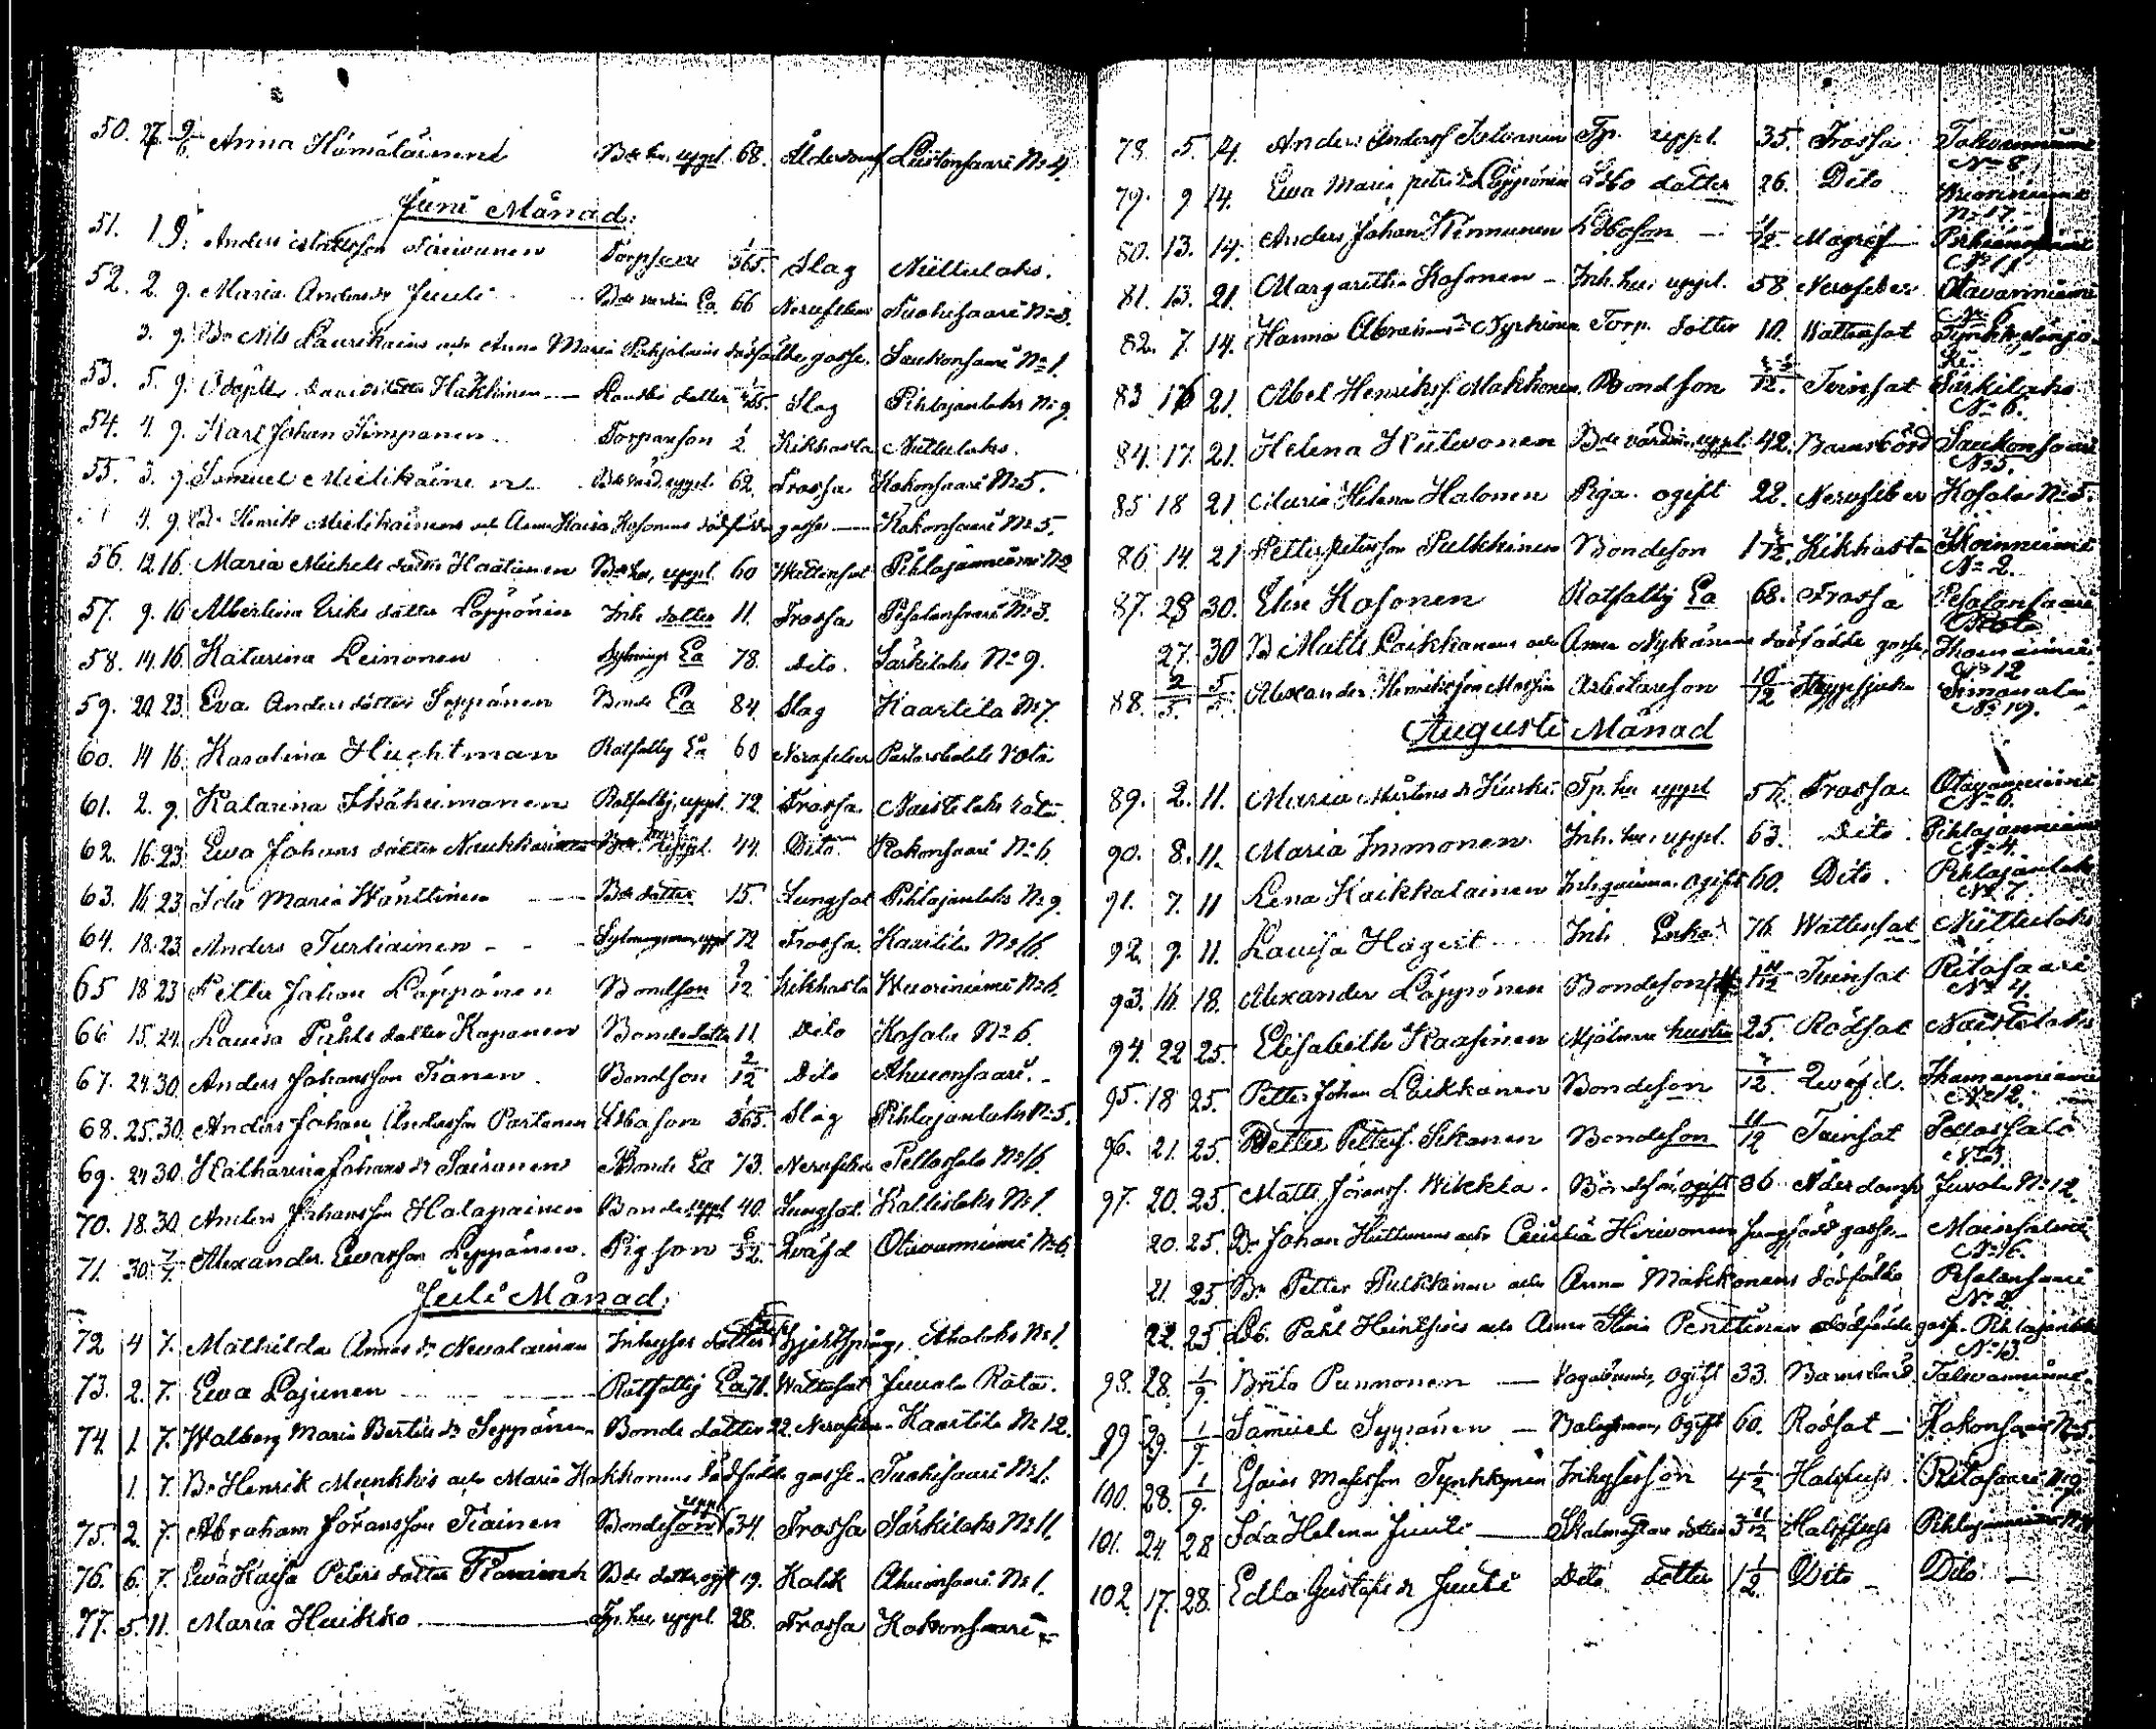 50. 27. 9/6 Anna Hämäläinen Bde hu, uppl. 68. Ålderdomsf Liistonsaari No 4.
Juni Månad:
51. 1 9. Anders Mattsson Parviainen Torpson 1/365. Slag Niittulaks.
52. 2. 9. Maria Anders dr Juuti Bde värdin Ea 66 Nervfeber Tuohisaari No 3.
3. 9. Bn Nils Laurikains och Anna Maria Pohjolains dödfödde gosse. Saukonsaari No 1.
53. 5. 9. Davids dotter Häkkinen Landbo dotter 1/365. Slag Pihlajanlaks No 9.
54. 4. 9. Karl Johan Timpanen Torpareson 1/2. Kikhosta Niittulaks.
55. 3. 9. Samuel Mielikäinen Bde värd, uppl. 62. Frossa Kokonsaari No 5.
4. 9. Bn Henrik Mielikäinens och Anna Kaisa Kosonens dödfödda gosse Kokonsaari No 5.
56. 12. 16. Maria Michels dotter Haatainen Bde hu, uppl. 60 Wattensot Pihlajaniemi No 2
57. 9. 16 Albertina Eriks dotter Löppönen Inh. dotter 11. Frossa Pesolansaari No 3.
58. 14. 16. Katarina Leinonen Sytnings Ea 78. Dito. Särkilaks No 9.
59. 20. 23. Eva Anders dotter Seppänen Bonde Ea 84. Slag Kaartila No 7.
60. 14 16. Karolina Huchtman Rotfattig Ea 60 Nervfeber Rota
61. 2. 9. Katarina Ihäheimonen Rotfattig, uppl. 72. Frossa Naistelaks rota.
62. 16. 23. Ewa Johans dotter Neukkarinen Bde hust uppl. 44. Dito Kokonsaari No 6.
63. 16. 23 Ida Maria Wänttinen Bde dotter 15. Lungsot Pihlajanlaks No 9.
64. 18. 23 Anders Turtiainen Sytningsman, uppl 72 Frossa Kaartila No 16.
65 18 23 Petter Johan Löppönen Bondson 9/12 Kikhosta Wuoriniemi No 6.
66 15. 24. Lauisa Påhls dotter Kaponen Bondedotter 11. Dito Kosala No 6.
67. 24. 30. Anders Johansson Tiänen Bondson 2/12 Dito Ahuonsaari.
68. 25. 30. Anders Johan Andersson Partanen Ldboson 1/365. Slag Pihlajanlaks No 5.
69. 24 30. Katharina Johans dr Sairanen Bonde Ea 73. Nervfeber Pellossalo No 16.
70. 18. 30. Anders Johansson Halapainen Bonde uppl 40. Lungsot. Kallislaks No 1.
71. 30. 7/7. Alexander Ewasson Leppänen. Pigson 6/52. Qväfd Otavanniemi No 6
Juli Månad:
72 4 7. Mathilda Annas dr Nevalainen Inhyses dotter Hjertspång, Ahalaks No 1.
73. 2. 7. Ewa Lajunen Rotfattig Ea 78. Wattusot Juvola Rota.
74. 1 7. Walborg Maria Bertils dr Seppänen Bonde dotter 22. Nervfeber Kaartila No 12.
1. 7. Bn Henrik Munkkis och Maria Hakkonens dödfödde gosse Tuohisaari No 1.
75. 2. 7. Abraham Göransson Tiainen Bondeson uppl 34. Frossa Särkilaks No 11.
76. 6. 7. Ewa Kaisa Peters dotter Bde dotter ogift 19. Kolik Ahuonsaari No 1.
77. 5. 11. Maria Huikko Tp. hu, uppl. 28. Frossa Kokonsaari
78. 5. 14. Anders Anderss Tp. uppl. 35. Frossa Tolvanniemi
No 8
79. 9 14. Ewa Maria Petri dr Löppönen Ldbo dotter 26. Dito Wuoriniemi
No 17.
80. 13. 14. Anders Johan Kinnunen Ldboson 11/12. Magref
No 11.
81. 13. 21. Margaretha Kosonen Inh. hu, uppl. 58. Nervfeber Otavanniemi
No 6
82. 7. 14. Hanna Abrahams dr Nyrhinen Torp. dotter 10. Wattusot
83 16 21. Abel Henrikss. Makkonen Bondson /12. Tvinsot Särkilaks
No 6.
84. 17. 21. Helena Hiltvonen Bde värdin, uppl. 42. Barnsbörd Saukonsaari
No 5.
85 18 21 Maria Helena Halonen Piga ogift 22. Nervfeber Kosala No 5.
86. 14. 21 Petter Petersson Pulkkinen Bondeson 1 /12. Kikhosta
No 2.
87. 28 30. Elin Kosonen Rotfattig Ea 68. Frossa Pesolansaari
Rota
27. 30 Bn Matts Loikkanens och Anna Nykänens dödfödde gosse,
No 12
88. 2/5. 5/5. Alexander Henriksson Arbetareson 10/12 Simanala
No 19.
Augusti Månad
89. 2. 11. Maria Mårtens dr Kurki Tp. hu uppl 57. Frossa Otavanniemi
No 6.
90. 8. 11. Maria Immonen Inh. hu, uppl. 63. Dito. Pihlajanniemi
No 4.
91. 7. 11 Lena Kaikkalainen Inh. qvinna, ogift 60. Dito. Pihlajanlaks
No 7.
92. 9. 11. Lauisa Hagert Inh. Enka 76. Wattusot Niittulaks
93. 16. 18. Alexander Löppönen Bondeson 1 11/12 Tvinsot Ritosaari
No 4.
94. 22 25. Elisabeth Kaasinen Mjölnare hustru 25. Rödsot Naistelaks
95. 18 25. Petter Johan Loikkanen Bondeson /12. Qväfd.
No 12.
96. 21. 25. Petter Petters. Sikanen Bondeson 11/12 Tvinsot Pellossalo
No 3.
97. 20. 25. Matts Göranss. Wikkla. Bondson, ogift 86 Ålderdomsf Juvola No 12.
20. 25. Bn Johan Huttunens och Cecilia Hirvonens gosse Mainsalmi
No 16.
21. 25 Bn Petter Pulkkinens och Anna Makkonens dödfödda Pesolansaari
No 2.
22. 25. Ldb. Påhl Heiskasis och Anna Stina Penttinens dödfödde gosse. Pihlajanlaks
No 13.
98. 28. 1/9. Brita Punnonen Ogift 33. Barnsbörd Tolvanniemi
99 29. 1/9. Samuel Seppänen Ogift 60. Rödsot Kokonsaari No 5
100. 28. 1/9. Esaias Matsson Tynkkynen Inhysesson 4 1/2 Halsfluss. Ritosaari No 9
101. 24. 28 Ida Helena Juuti Skolmästare dotter 3 11/12 Halsfluss
102. 17. 28. Edla Gustafs dr Juuti Dito dotter 1 1/2 Dito Dito